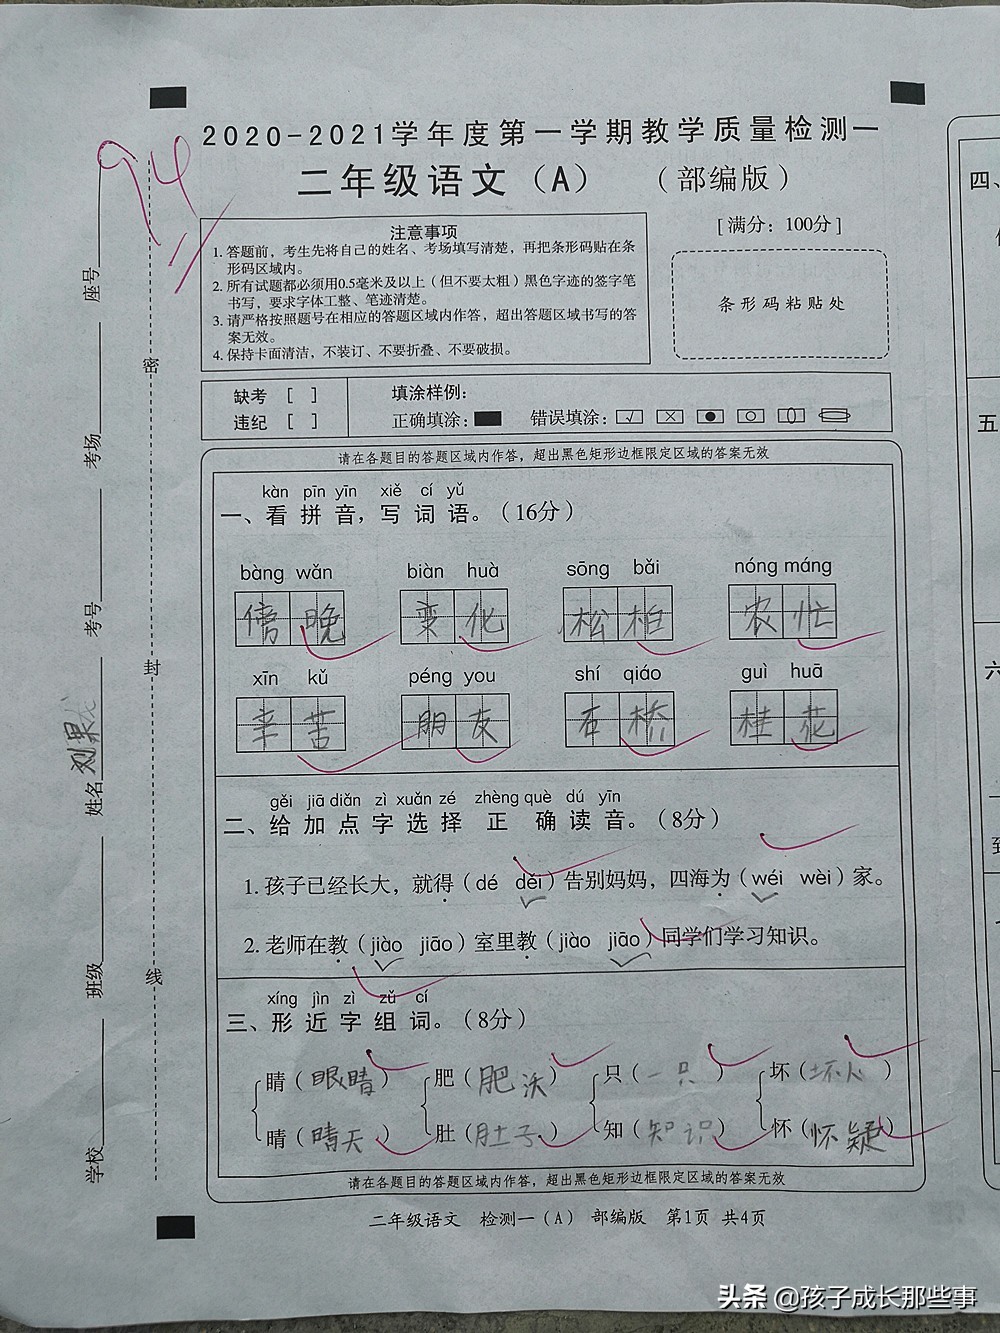 94
2020-2021学年度第一学期教学质量检测一
二年级语文（A） （部编版）
注意事项
[满分：100分]
1. 答题前，考生先将自己的姓名、考场填写清楚，再把条形码贴在条
形码区域内。
2. 所有试题都必须用0.5毫米及以上（但不要太粗）黑色字迹的签字笔
书写，要求字体工整、笔迹清楚。
3. 请严格按照题号在相应的答题区域内作答，超出答题区域书写的答
案无效。
4. 保持卡面清洁，不装订、不要折叠、不要破损。
条形码粘贴处
缺考 [ ] 填涂样例：
违纪 [ ] 正确填涂： 错误填涂：
请在各题目的答题区域内作答，超出黑色矩形边框限定区域的答案无效
kàn pīn yīn xiě cí yǔ
一、看拼音，写词语。（16分）
bàng wǎn biàn huà sōng bǎi nóng máng
傍晚 变化 松柏 农忙
xīn kǔ péng you shí qiáo guì huā
辛苦 朋友 石桥 桂花
gěi jiā diǎn zì xuǎn zé zhèng què dú yīn
二、给加点字选择正确读音。（8分）
1. 孩子已经长大，就得（dé děi）告别妈妈，四海为（wéi wèi）家。
2. 老师在教（jiào jiāo）室里教（jiào jiāo）同学们学习知识。
xíng jìn zì zǔ cí
三、形近字组词。（8分）
睛（眼睛） 肥（肥沃） 只（一只） 坏（坏人）
晴（晴天） 肚（肚子） 知（知识） 怀（怀疑）
请在各题目的答题区域内作答，超出黑色矩形边框限定区域的答案无效
二年级语文 检测一（A） 部编版 第1页 共4页
学校 班级 姓名 考号 考场 座号
密 封 线
四、
五
六
头条 @孩子成长那些事